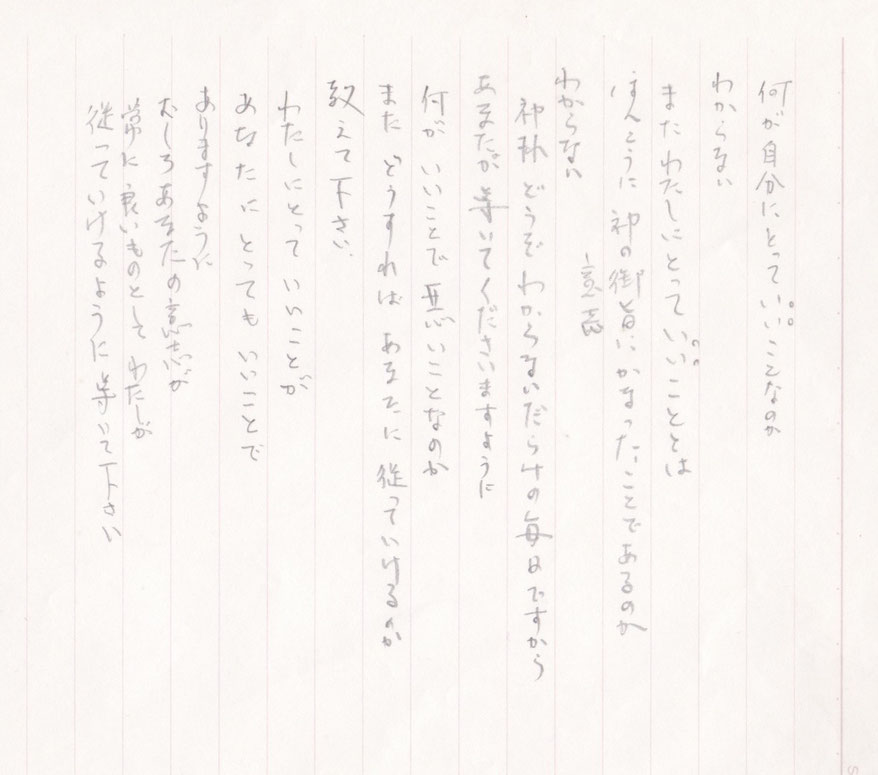 何が自分にとっていいことなのか
わからない
またわたしにとっていいこととは
ほんとうに神の御旨にかなったことであるのか
意志
わからない
神様どうぞわからないだらけの毎日ですから
あなたが導いてくださいますように
何がいいことで悪いことなのか
またどうすればあなたに従っていけるのか
教えて下さい
わたしにとっていいことが
あなたにとってもいいことで
ありますように
むしろあなたの意志が
常に良いものとしてわたしが
従っていけるように導いて下さい